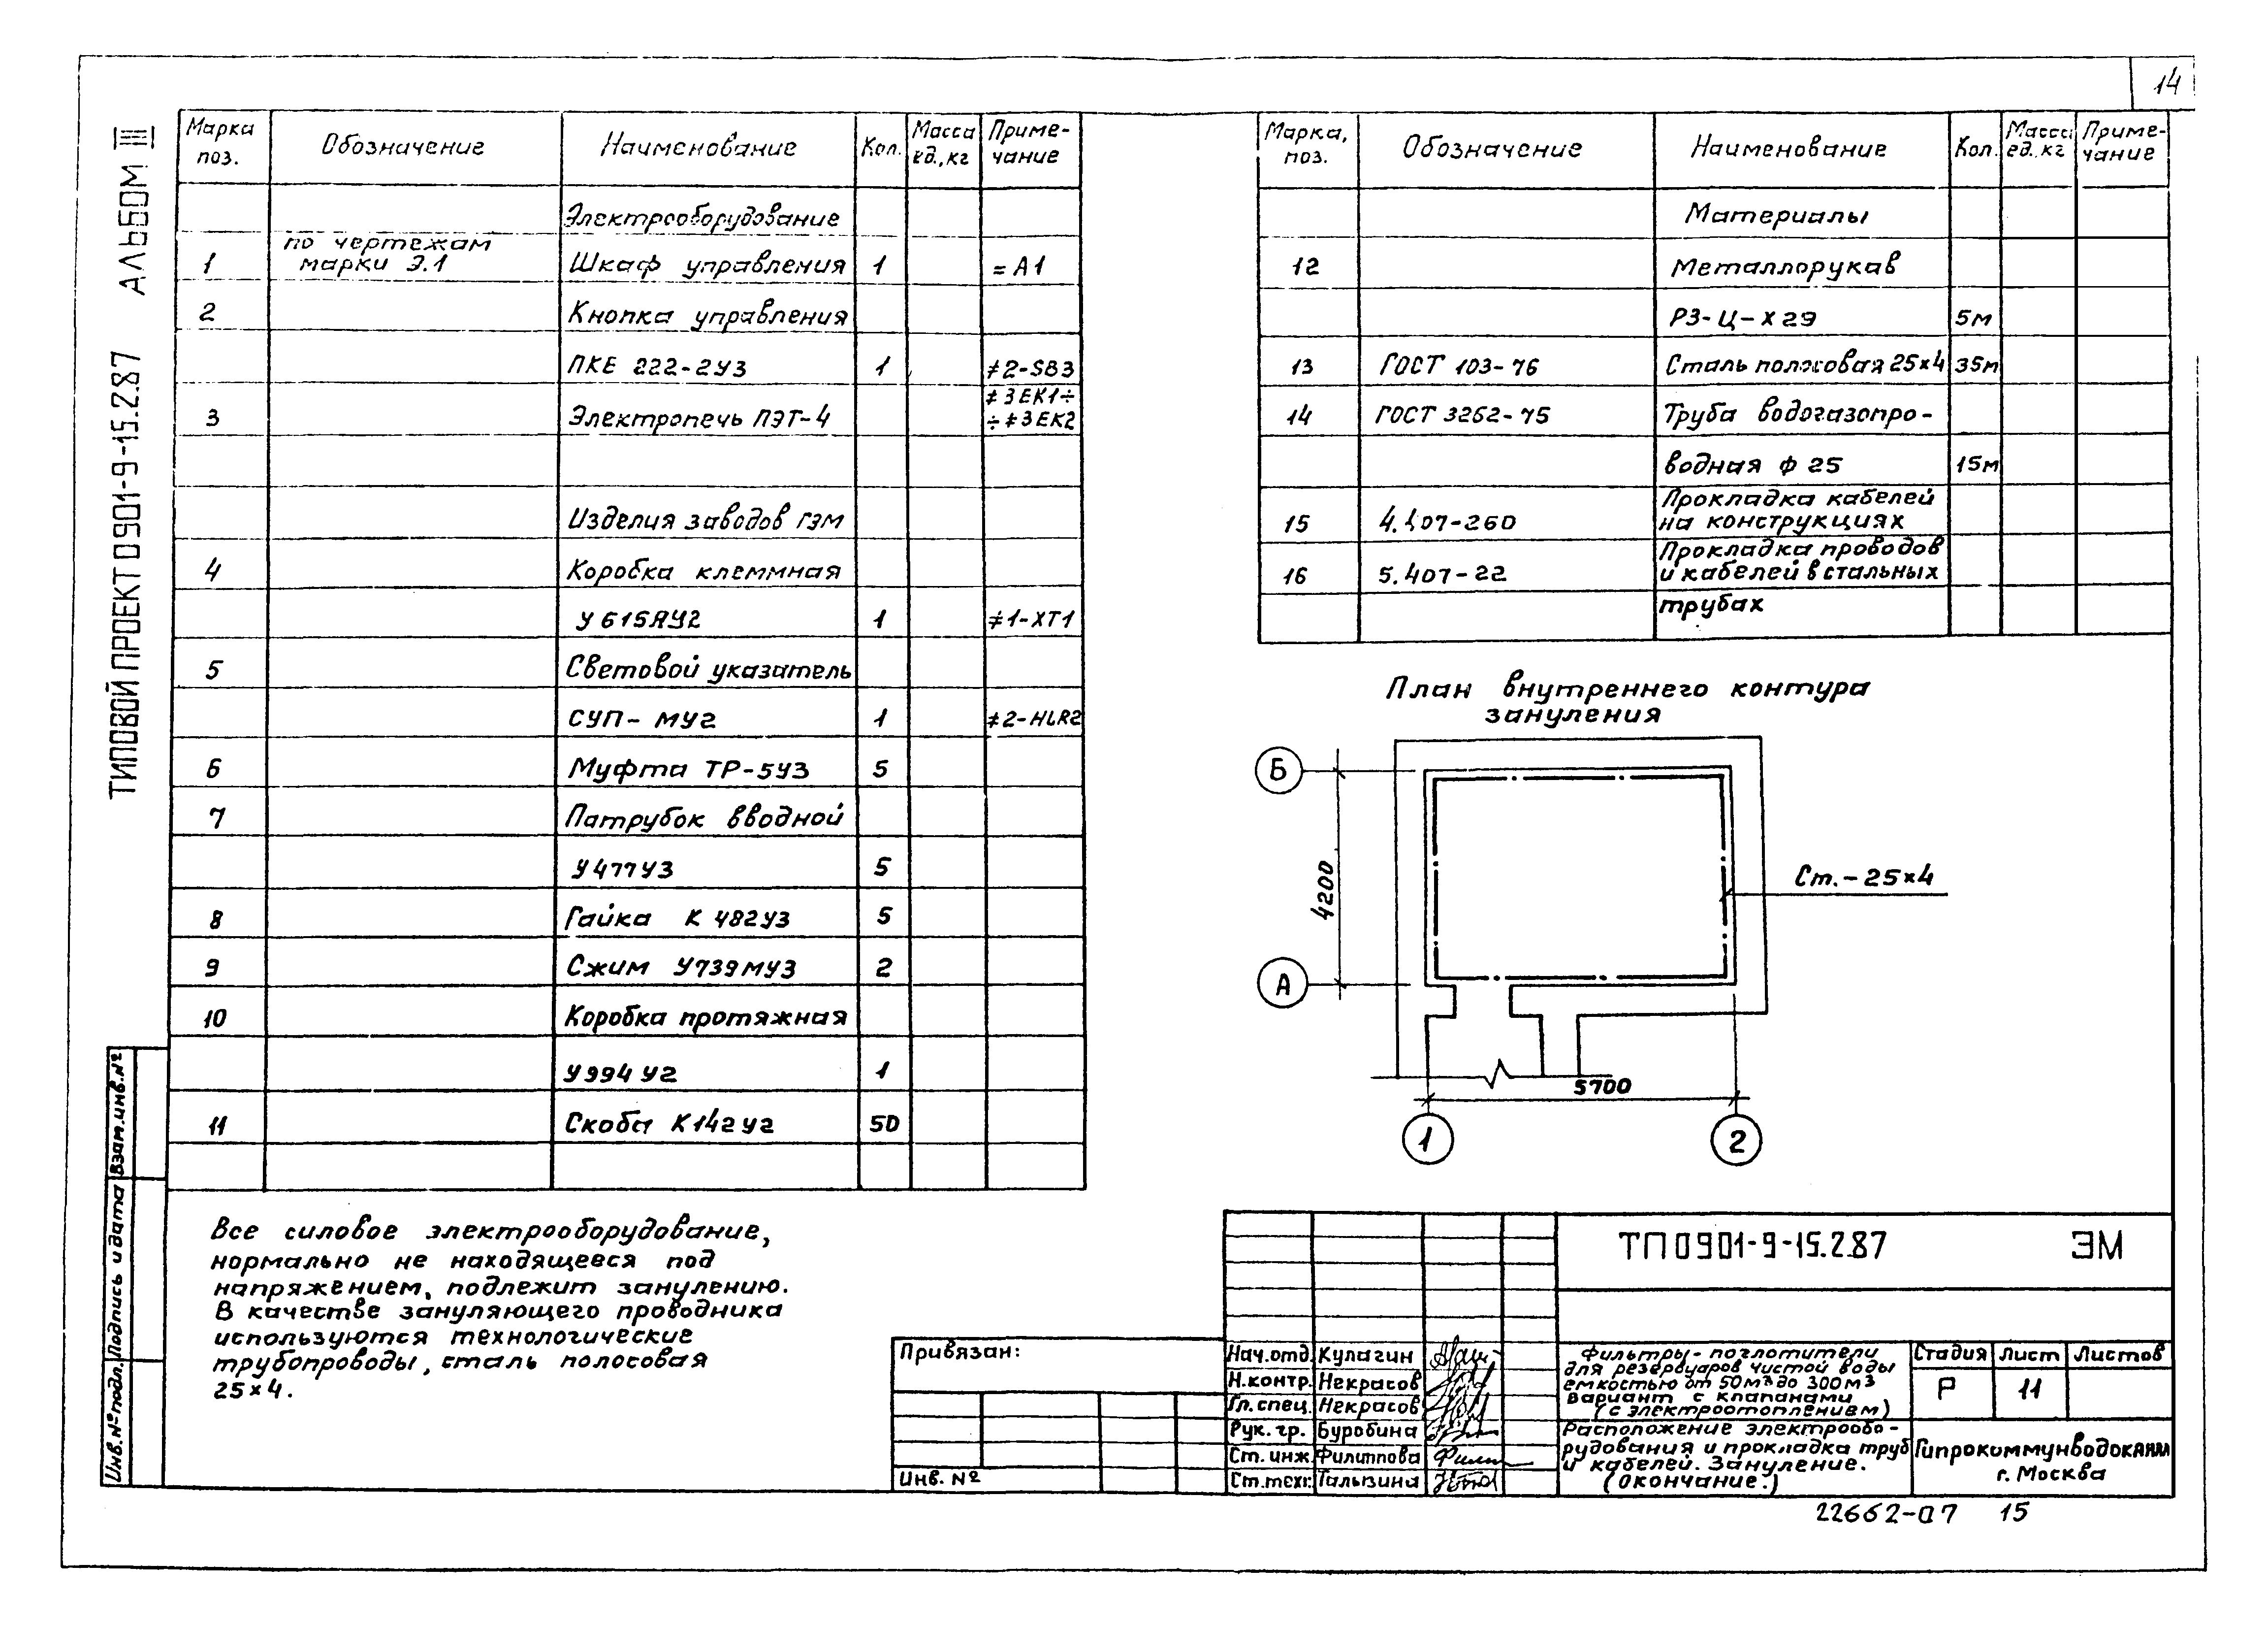 14
ТИПОВОЙ ПРОЕКТ 0901-9-15.2.87 АЛЬБОМ III
Марка поз. Обозначение Наименование Кол. Масса ед.,кг Приме-чание
Электрооборудование
1 по чертежам марки Э.1 Шкаф управления 1 =А1
2 Кнопка управления
ПКЕ 222-2У3 1 ≠2-SB3
3 Электропечь ПЭТ-4 ≠3EK1÷ ÷≠3EK2
Изделия заводов ГЭМ
4 Коробка клеммная
У615АУ2 1 ≠1-XT1
5 Световой указатель
СУП-МУ2 1 ≠2-HLR2
6 Муфта ТР-5У3 5
7 Патрубок вводной
У477У3 5
8 Гайка К 482У3 5
9 Сжим У739МУ3 2
10 Коробка протяжная
У994У2 1
11 Скоба К142У2 50
Марка, поз. Обозначение Наименование Кол. Масса ед.,кг Приме-чание
Материалы
12 Металлорукав
РЗ-Ц-Х29 5м
13 ГОСТ 103-76 Сталь полосовая 25×4 35м
14 ГОСТ 3262-75 Труба водогазопро-
водная ф 25 15м
15 4.407-260 Прокладка кабелей на конструкциях
16 5.407-22 Прокладка проводов и кабелей в стальных
трубах
План внутреннего контура
зануления
Б
4200
Ст.-25×4
А
5700
1 2
Все силовое электрооборудование,
нормально не находящееся под
напряжением, подлежит занулению.
В качестве зануляющего проводника
используются технологические
трубопроводы, сталь полосовая
25×4.
Взам.инв.№
Подпись и дата
Инв.№подл.
Привязан:
Инв. №
ТП 0901-9-15.2.87 ЭМ
Нач.отд. Кулагин
Н.контр. Некрасов
Гл.спец. Некрасов
Рук.гр. Буробина
Ст.инж. Филиппова
Ст.техн. Талызина
Фильтры-поглотители
для резервуаров чистой воды
емкостью от 50м³ до 300м³
Вариант с клапанами
(с электроотоплением)
Стадия Лист Листов
Р 11
Расположение электрообо-
рудования и прокладка труб
и кабелей. Зануление.
(Окончание.)
Гипрокоммунводоканал
г. Москва
22662-07 15